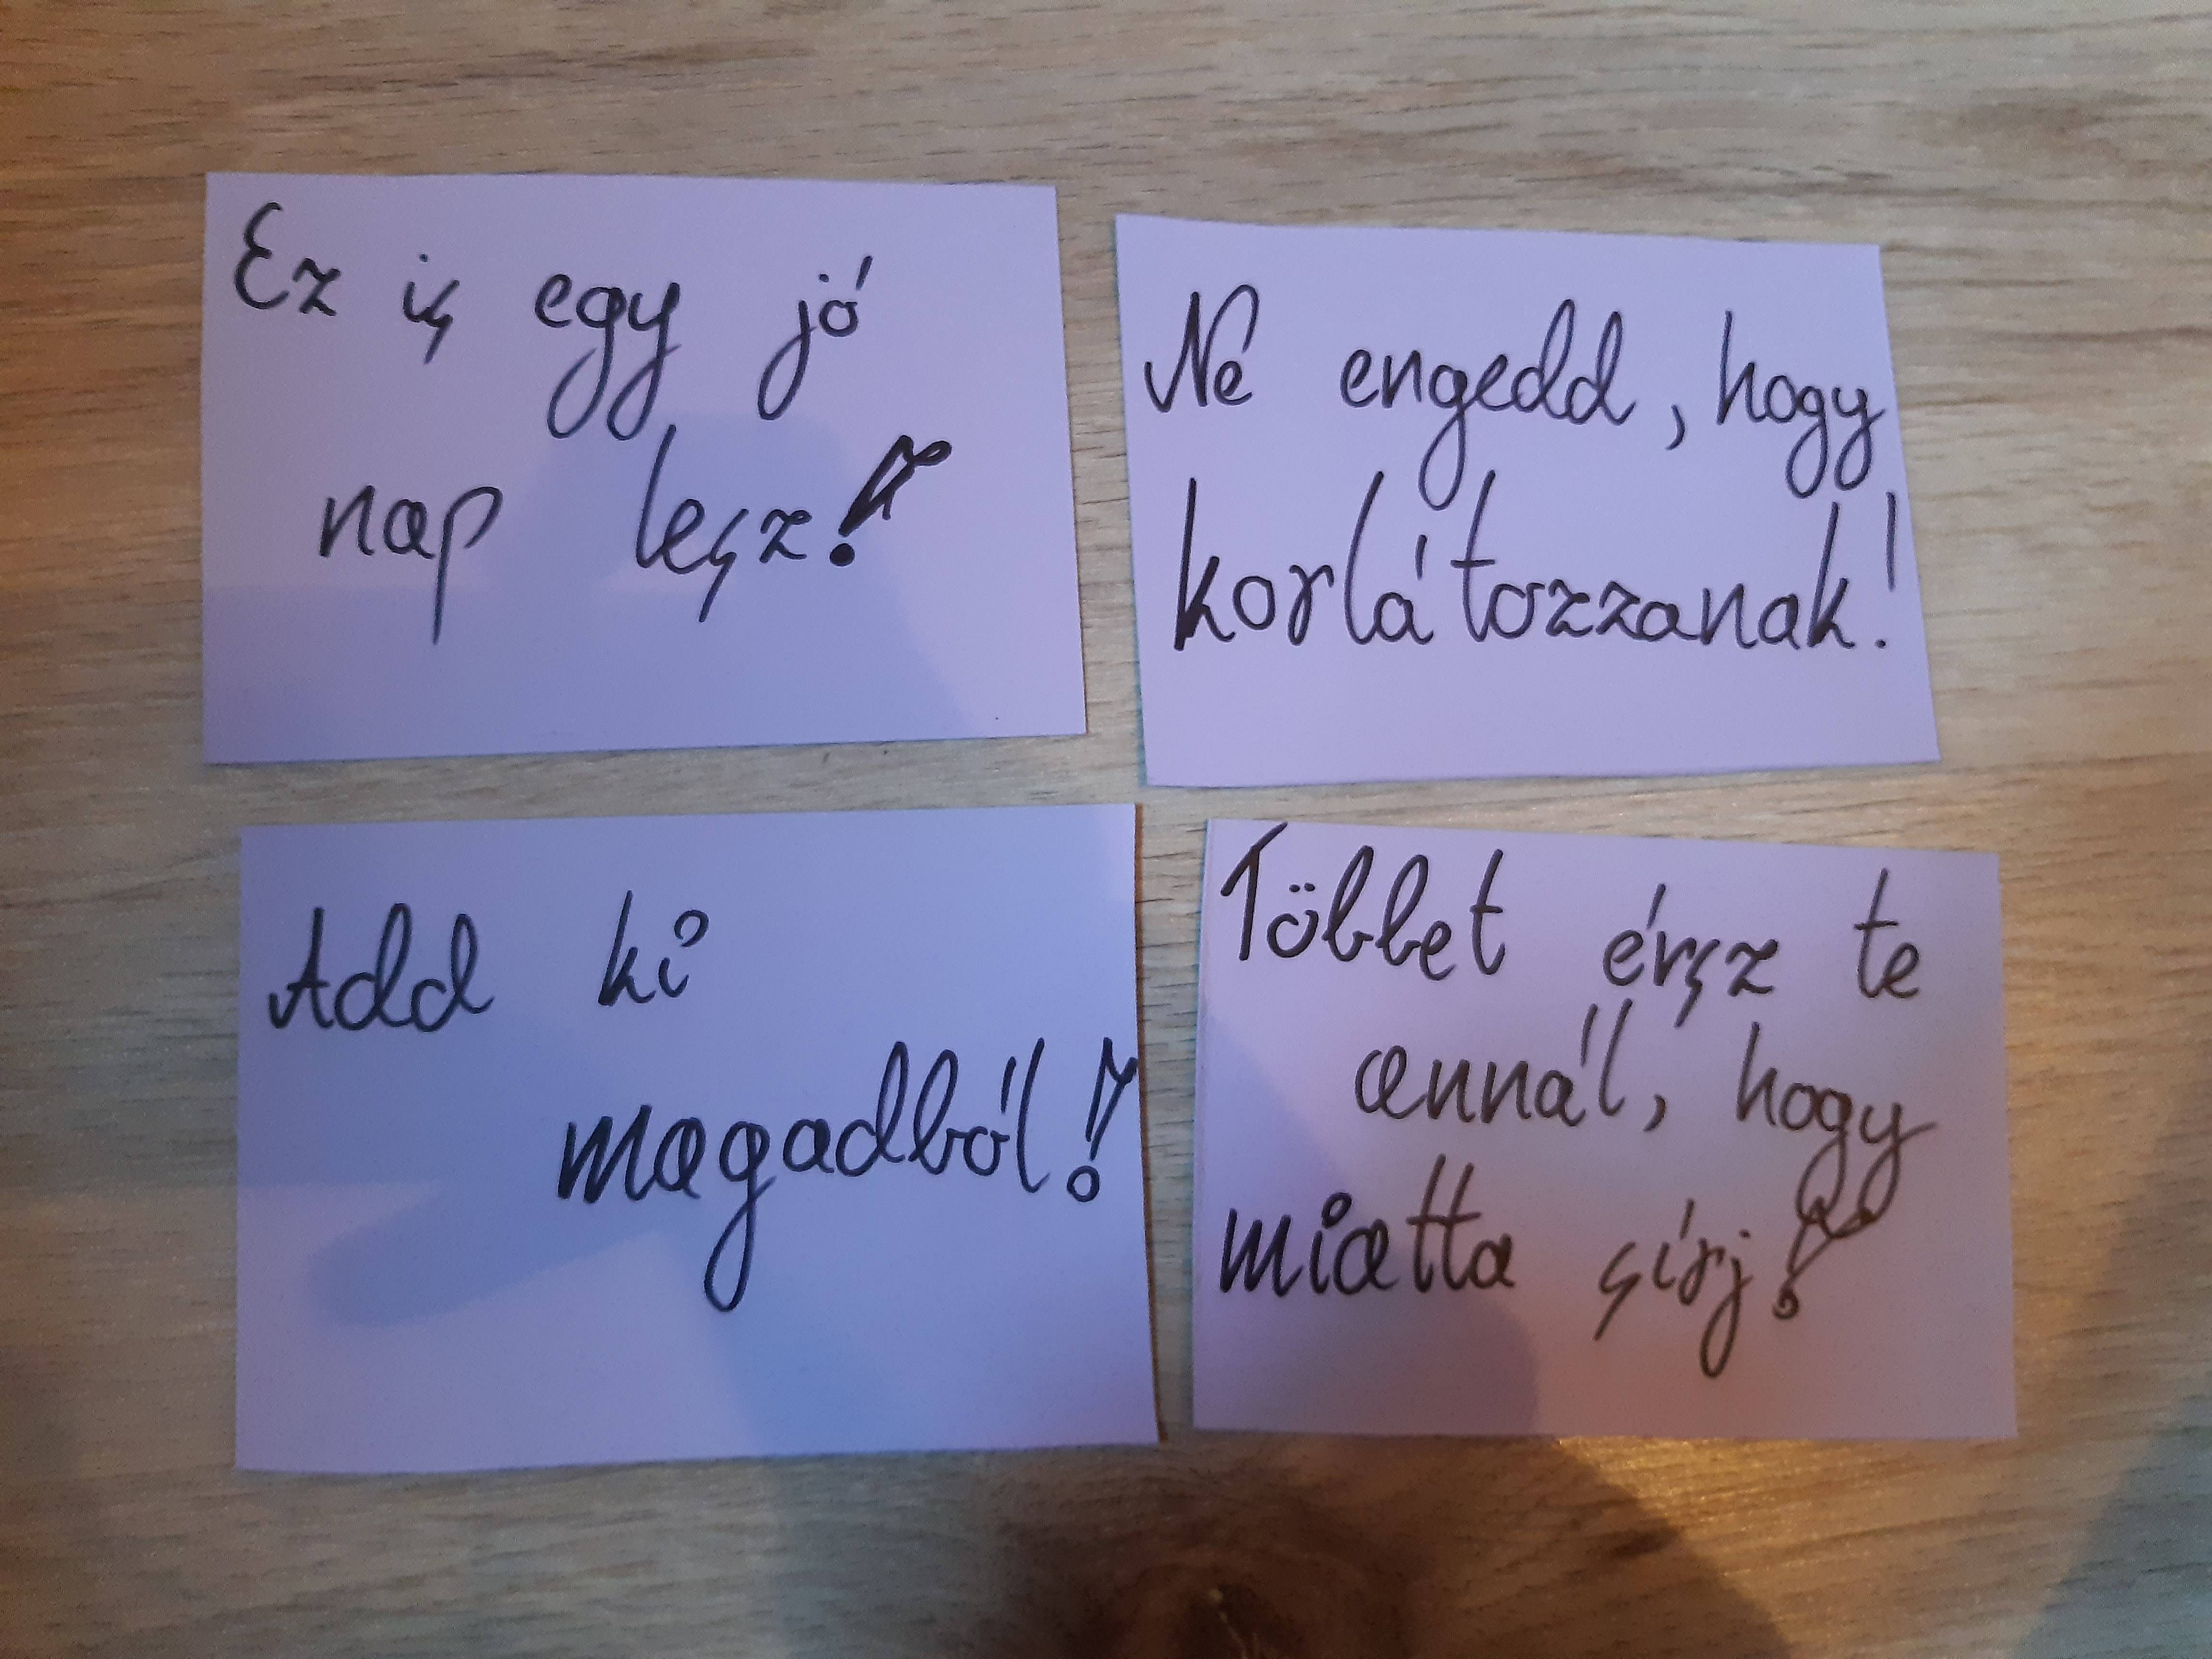 Ez is egy jó
nap lesz!
Ne engedd, hogy
korlátozzanak!
Add ki
magadból!
Többet érsz te
annál, hogy
miatta sírj!